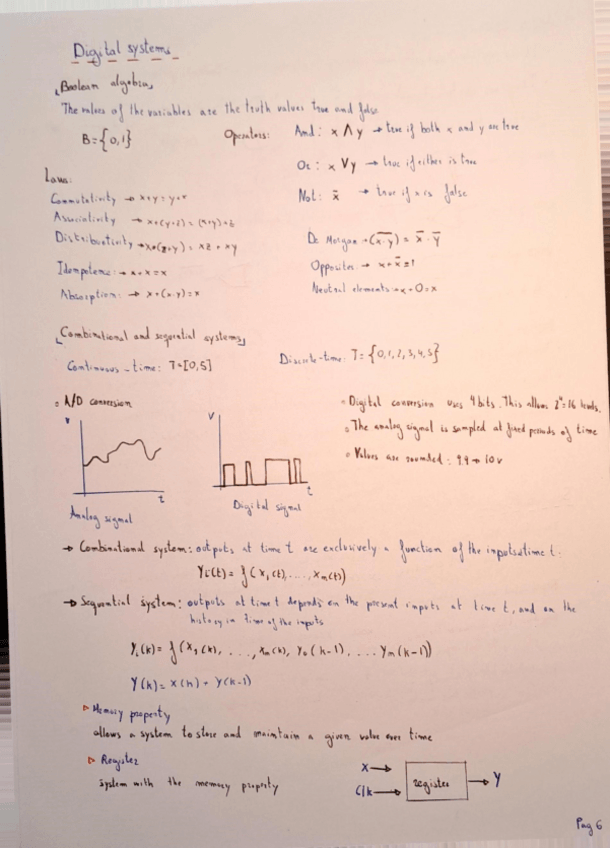 Digital systems
Boolean algebra
The values of the variables are the truth values true and false
B={0,1}
Operators:
And: x ∧ y → true if both x and y are true
Or: x ∨ y → true if either is true
Not: x̄ → true if x is false
Laws:
Commutativity → x+y = y+x
Associativity → x+(y+z) = (x+y)+z
Distributivity → x·(z+y) = xz + xy
Idempotence: → x+x=x
Absorption: → x+(x·y)=x
De Morgan → (x·y)‾ = x̄ · ȳ
Opposites → x+x̄=1
Neutral elements → x+0=x
Combinational and sequential systems
Continuous-time: T=[0,5]
Discrete-time: T={0,1,2,3,4,5}
A/D conversion
V
t
Analog signal
V
t
Digital signal
Digital conversion uses 4 bits. This allows 2⁴=16 levels.
The analog signal is sampled at fixed periods of time
Values are rounded: 9.9 → 10v
→ Combinational system: outputs at time t are exclusively a function of the inputs at time t.
Yi(t) = f(x1(t), ...., xm(t))
→ Sequential system: outputs at time t depends on the present inputs at time t, and on the
history in time of the inputs
Yi(k) = f(x1(k), ...., xn(k), y0(k-1), .... ym(k-1))
Y(k) = x(k) + y(k-1)
▷ Memory property
allows a system to store and maintain a given value over time
▷ Register
system with the memory property
X →
Clk →
register
→ Y
Pag 6